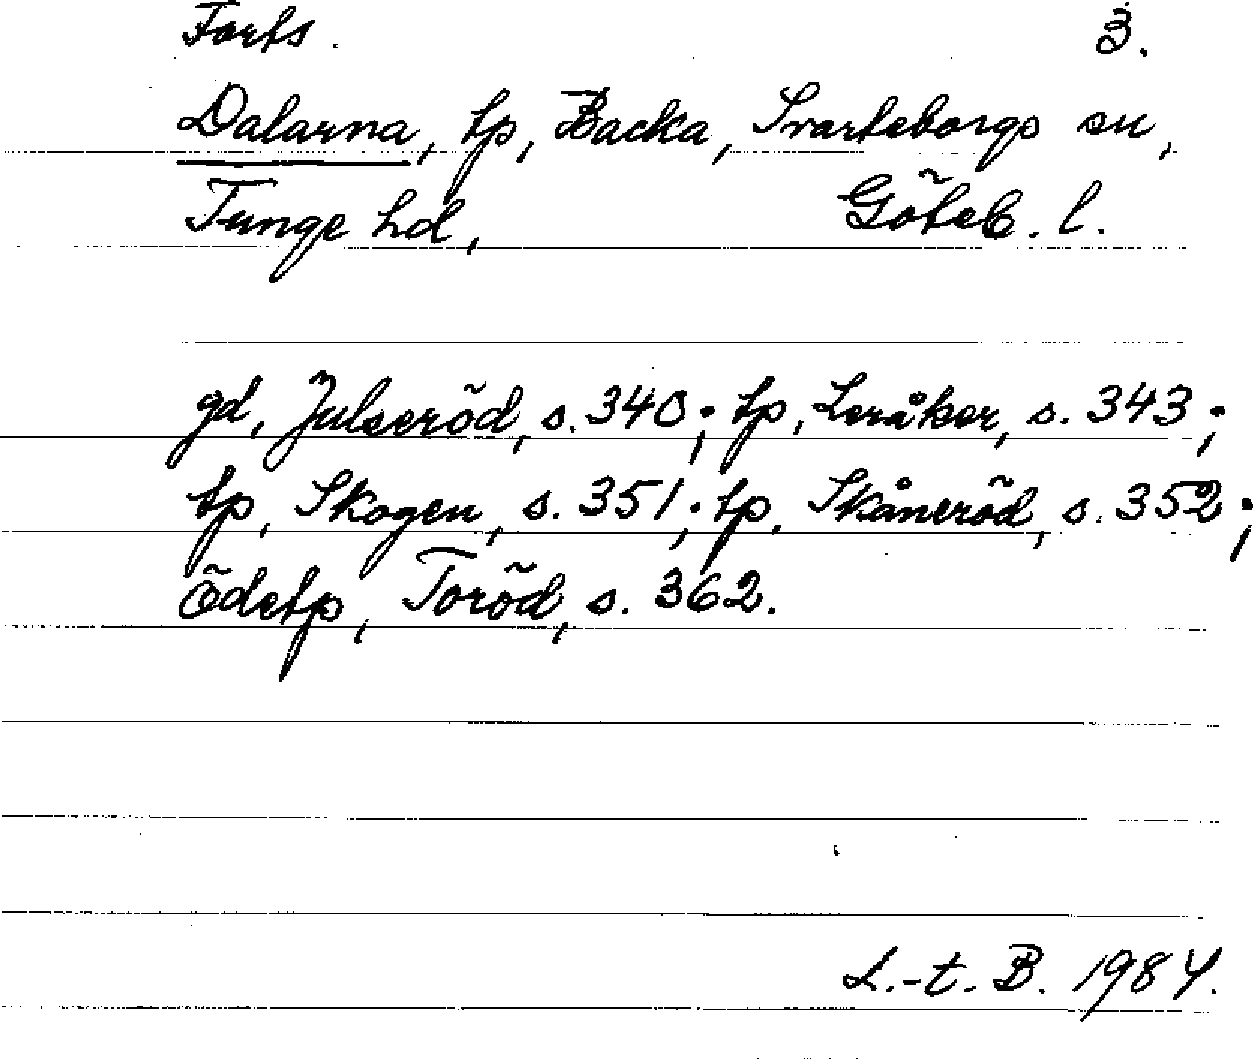 Forts. 3.
Dalarna, tp, Backa, Svarteborgs sn,
Tunge hd, Göteb. l.
gd, Julseröd, s. 340; tp, Leråker, s. 343;
tp, Skogen, s. 351; tp, Skåneröd, s. 352;
Ödetp, Toröd, s. 362.
L.-t. B. 1984.